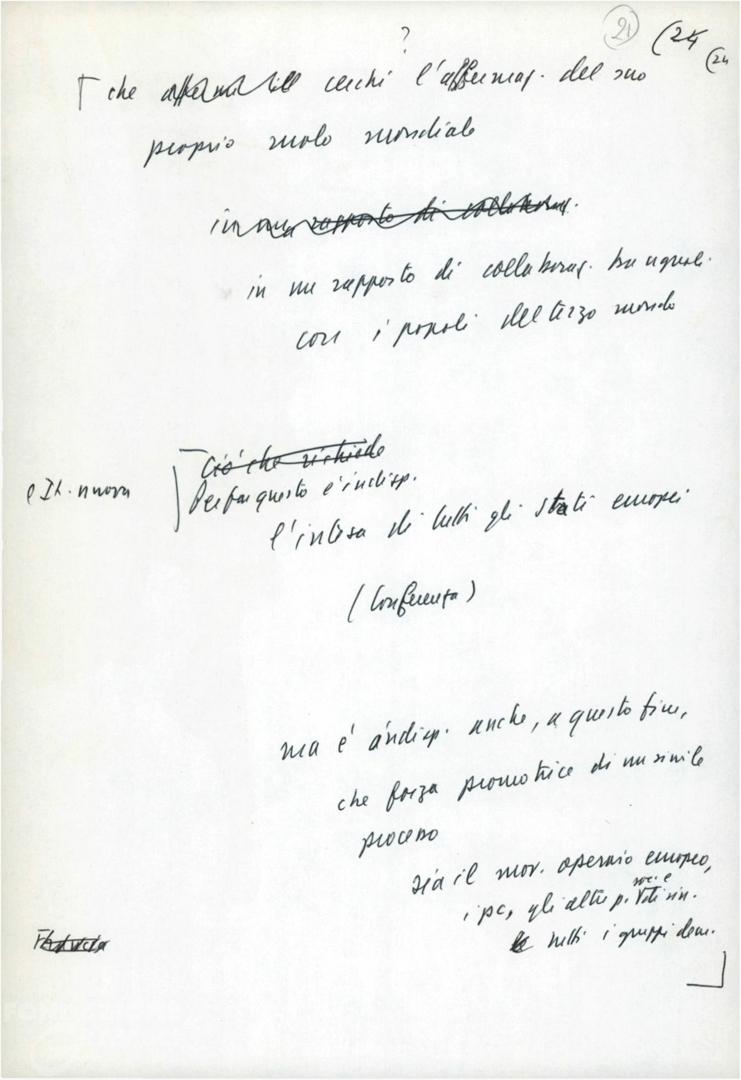 ?
21 (24
(24
che cerchi l'affermaz. del suo
proprio ruolo mondiale
in un rapporto di collaboraz.
in un rapporto di collaboraz. tra uguali
con i popoli del terzo mondo
Ciò che richiede
e It. nuova Per far questo è indisp.
l'intesa di tutti gli stati europei
(Conferenza)
ma è indisp. anche, a questo fine,
che forza promotrice di un simile
processo
sia il mov. operaio europeo,
soc. e
i pc, gli altri p. di sin.
tutti i gruppi dem.